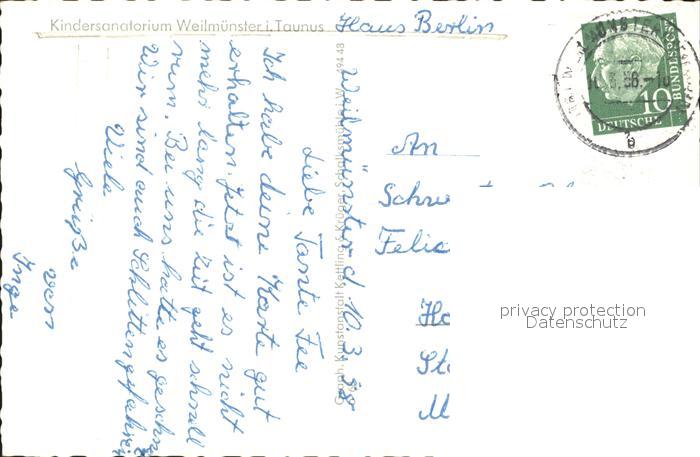 Kindersanatorium Weilmünster i. Taunus Haus Berlin
Weilmünster d 10.3.58
Liebe Tante Fee
Ich habe deine Karte gut
erhalten. Jetzt ist es nicht
mehr lang die Zeit geht schnell
rum. Bei uns hatte es geschn
Wir sind auch Schlittengefahren
Viele
Grüße
von
Inge
An
Schwe
Felic
Ha
St
M
DEUTSCHE
BUNDESPOST
10
privacy protection
Datenschutz